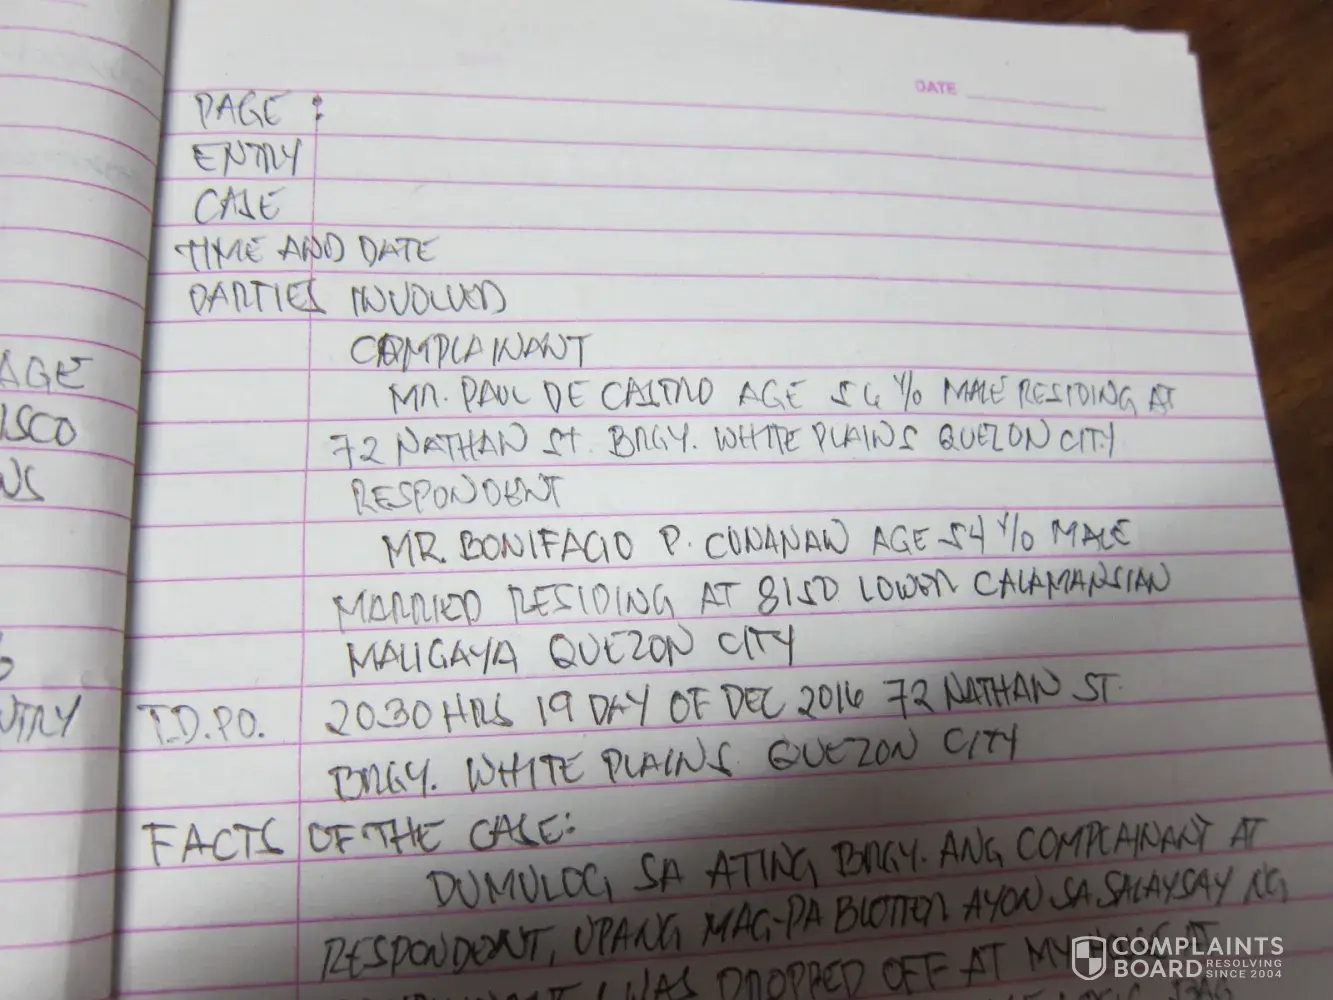 DATE
PAGE :
ENTRY
CASE
TIME AND DATE
PARTIES INVOLVED
COMPLAINANT
MR. PAUL DE CASTRO AGE 54 Y/O MALE RESIDING AT
72 NATHAN ST. BRGY. WHITE PLAINS QUEZON CITY
RESPONDENT
MR. BONIFACIO P. CUNANAN AGE 54 Y/O MALE
MARRIED RESIDING AT 8150 LOWER CALAMANSIAN
MALIGAYA QUEZON CITY
T.D.PO. 2030 HRS 19 DAY OF DEC 2016 72 NATHAN ST.
BRGY. WHITE PLAINS QUEZON CITY
FACTS OF THE CASE:
DUMULOG SA ATING BRGY. ANG COMPLAINANT AT
RESPONDENT, UPANG MAG-PA BLOTTER AYON SA SALAYSAY NG
I WAS DROPPED OFF AT MY AT
BAG
AGE
ISCO
NS
NTRY
COMPLAINTS
BOARD RESOLVING
SINCE 2004